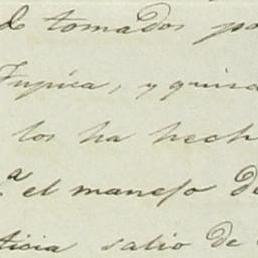 de tomados po
Tupiza, y quis
los ha hech
a el manejo de
ticia salio de